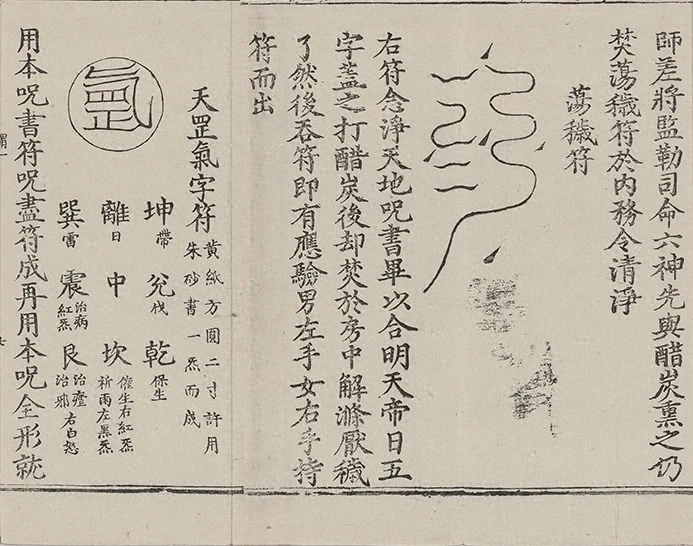 師差將監勒司命六神先與醋炭熏之仍
焚蕩穢符於内務令清淨
蕩穢符
右符念淨天地呪書畢以合明天帝日五
字蓋之打醋炭後却焚於房中解滌厭穢
了然後吞符即有應驗男左手女右手持
符而出
天罡氣字符
黄紙方圓二寸許用
朱砂書一炁而成
坤帶 兌伐 乾保生
離日 中 坎催生右紅炁祈雨左黑炁
巽雷 震治病紅炁 艮治瘧治邪右白炁
用本呪書符呪盡符成再用本呪全形就